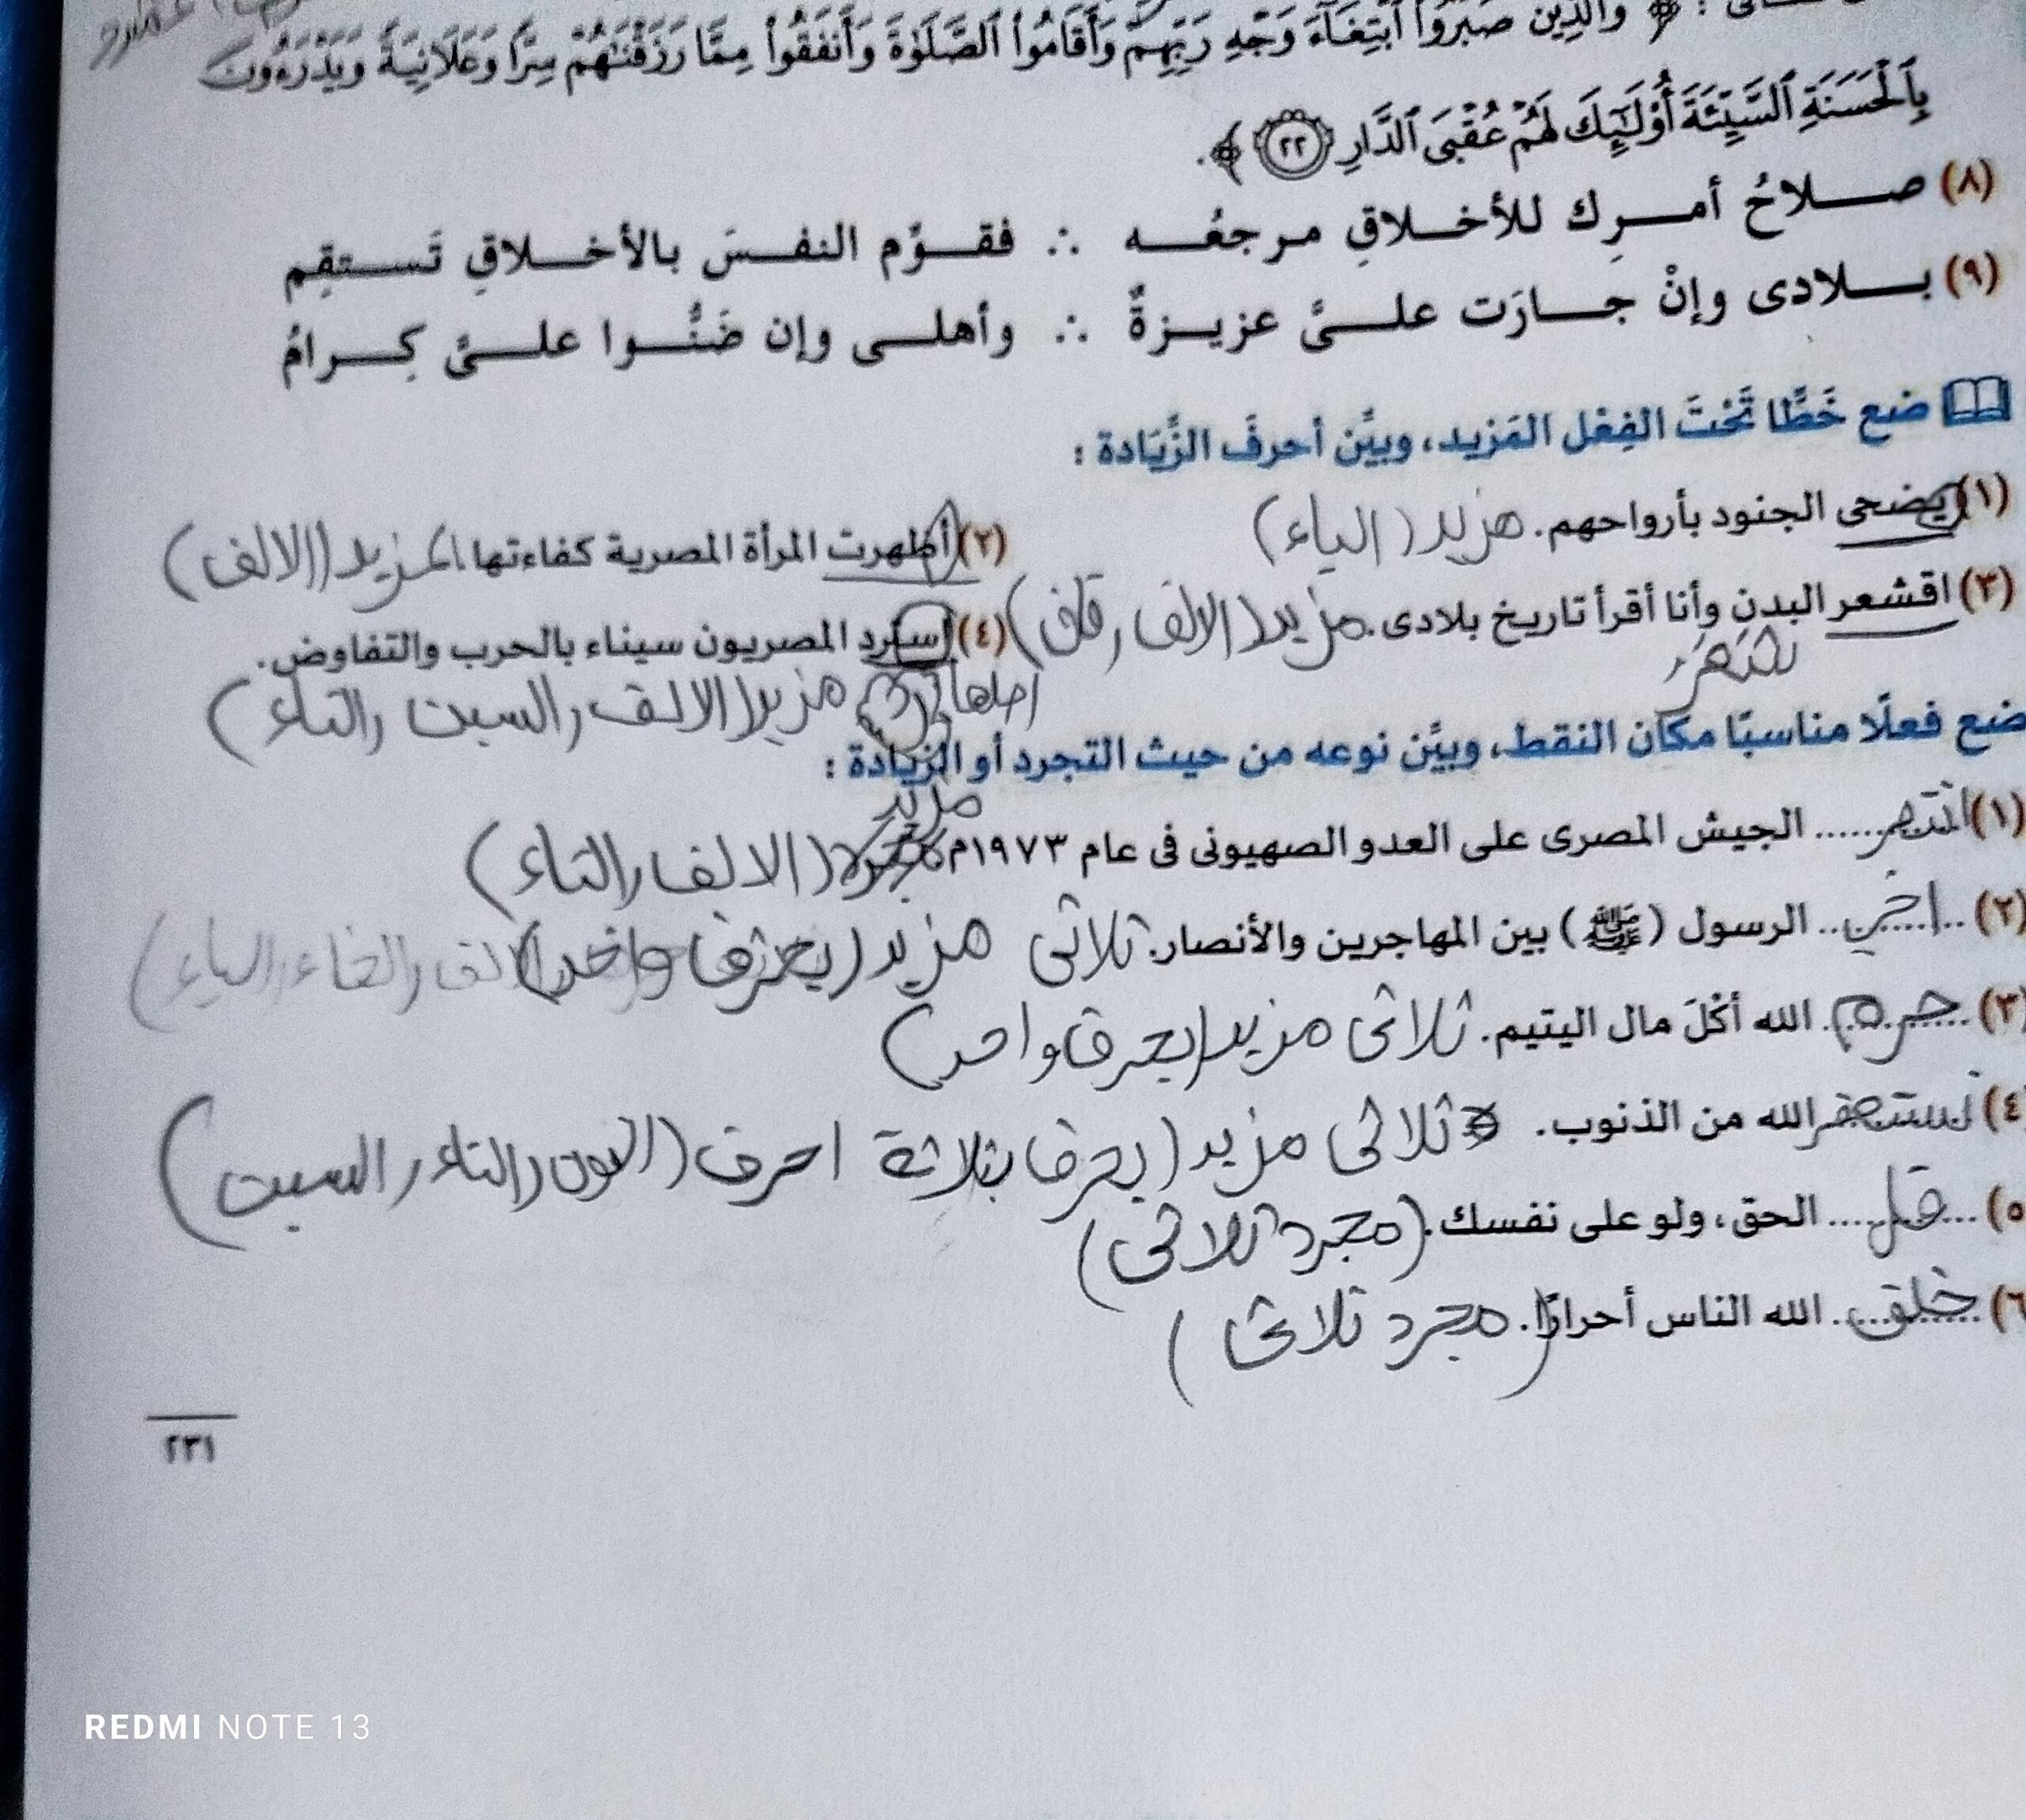 وَالَّذِينَ صَبَرُوا ابْتِغَاءَ وَجْهِ رَبِّهِمْ وَأَقَامُوا الصَّلَوٰةَ وَأَنفَقُوا مِمَّا رَزَقْنَٰهُمْ سِرًّا وَعَلَانِيَةً وَيَدْرَءُونَ
بِالْحَسَنَةِ السَّيِّئَةَ أُوْلَٰئِكَ لَهُمْ عُقْبَى الدَّارِ ٢٢ ﴾.
(٨) صلاحُ أمرِك للأخلاقِ مرجعُه ∴ فقوِّم النفسَ بالأخلاقِ تَستقِم
(٩) بلادى وإنْ جارَت علىَّ عزيزةٌ ∴ وأهلى وإن ضَنُّوا علىَّ كِرامُ
ضع خَطًّا تَحْتَ الفِعْل المَزيد، وبيَّن أحرفَ الزِّيَادة :
(١) يضحى الجنود بأرواحهم. مزيد (الياء)
(٢) أظهرت المرأة المصرية كفاءتها. مزيد (الالف)
(٣) اقشعر البدن وأنا أقرأ تاريخ بلادى. مزيد (الالف
(٤) استرد المصريون سيناء بالحرب والتفاوض.
اصلها مزيد (الالف والسين والتاء)
ضع فعلًا مناسبًا مكان النقط، وبيَّن نوعه من حيث التجرد أو الزيادة :
مزيد
(١) انتصر الجيش المصرى على العدو الصهيونى فى عام ١٩٧٣م (الالف والتاء)
(٢) اخي الرسول (ﷺ) بين المهاجرين والأنصار. ثلاثى مزيد (بحرف واحد)
(٣) حرم الله أكْلَ مال اليتيم. ثلاثى مزيد (بحرف واحد)
(٤) نستغفر الله من الذنوب. ثلاثى مزيد (بحرف بثلاثة احرف (النون والتاء والسين)
(٥) قل الحق، ولو على نفسك. (مجرد ثلاثى)
(٦) خلق الله الناس أحرارًا. (مجرد ثلاثى)
٢٣١
REDMI NOTE 13